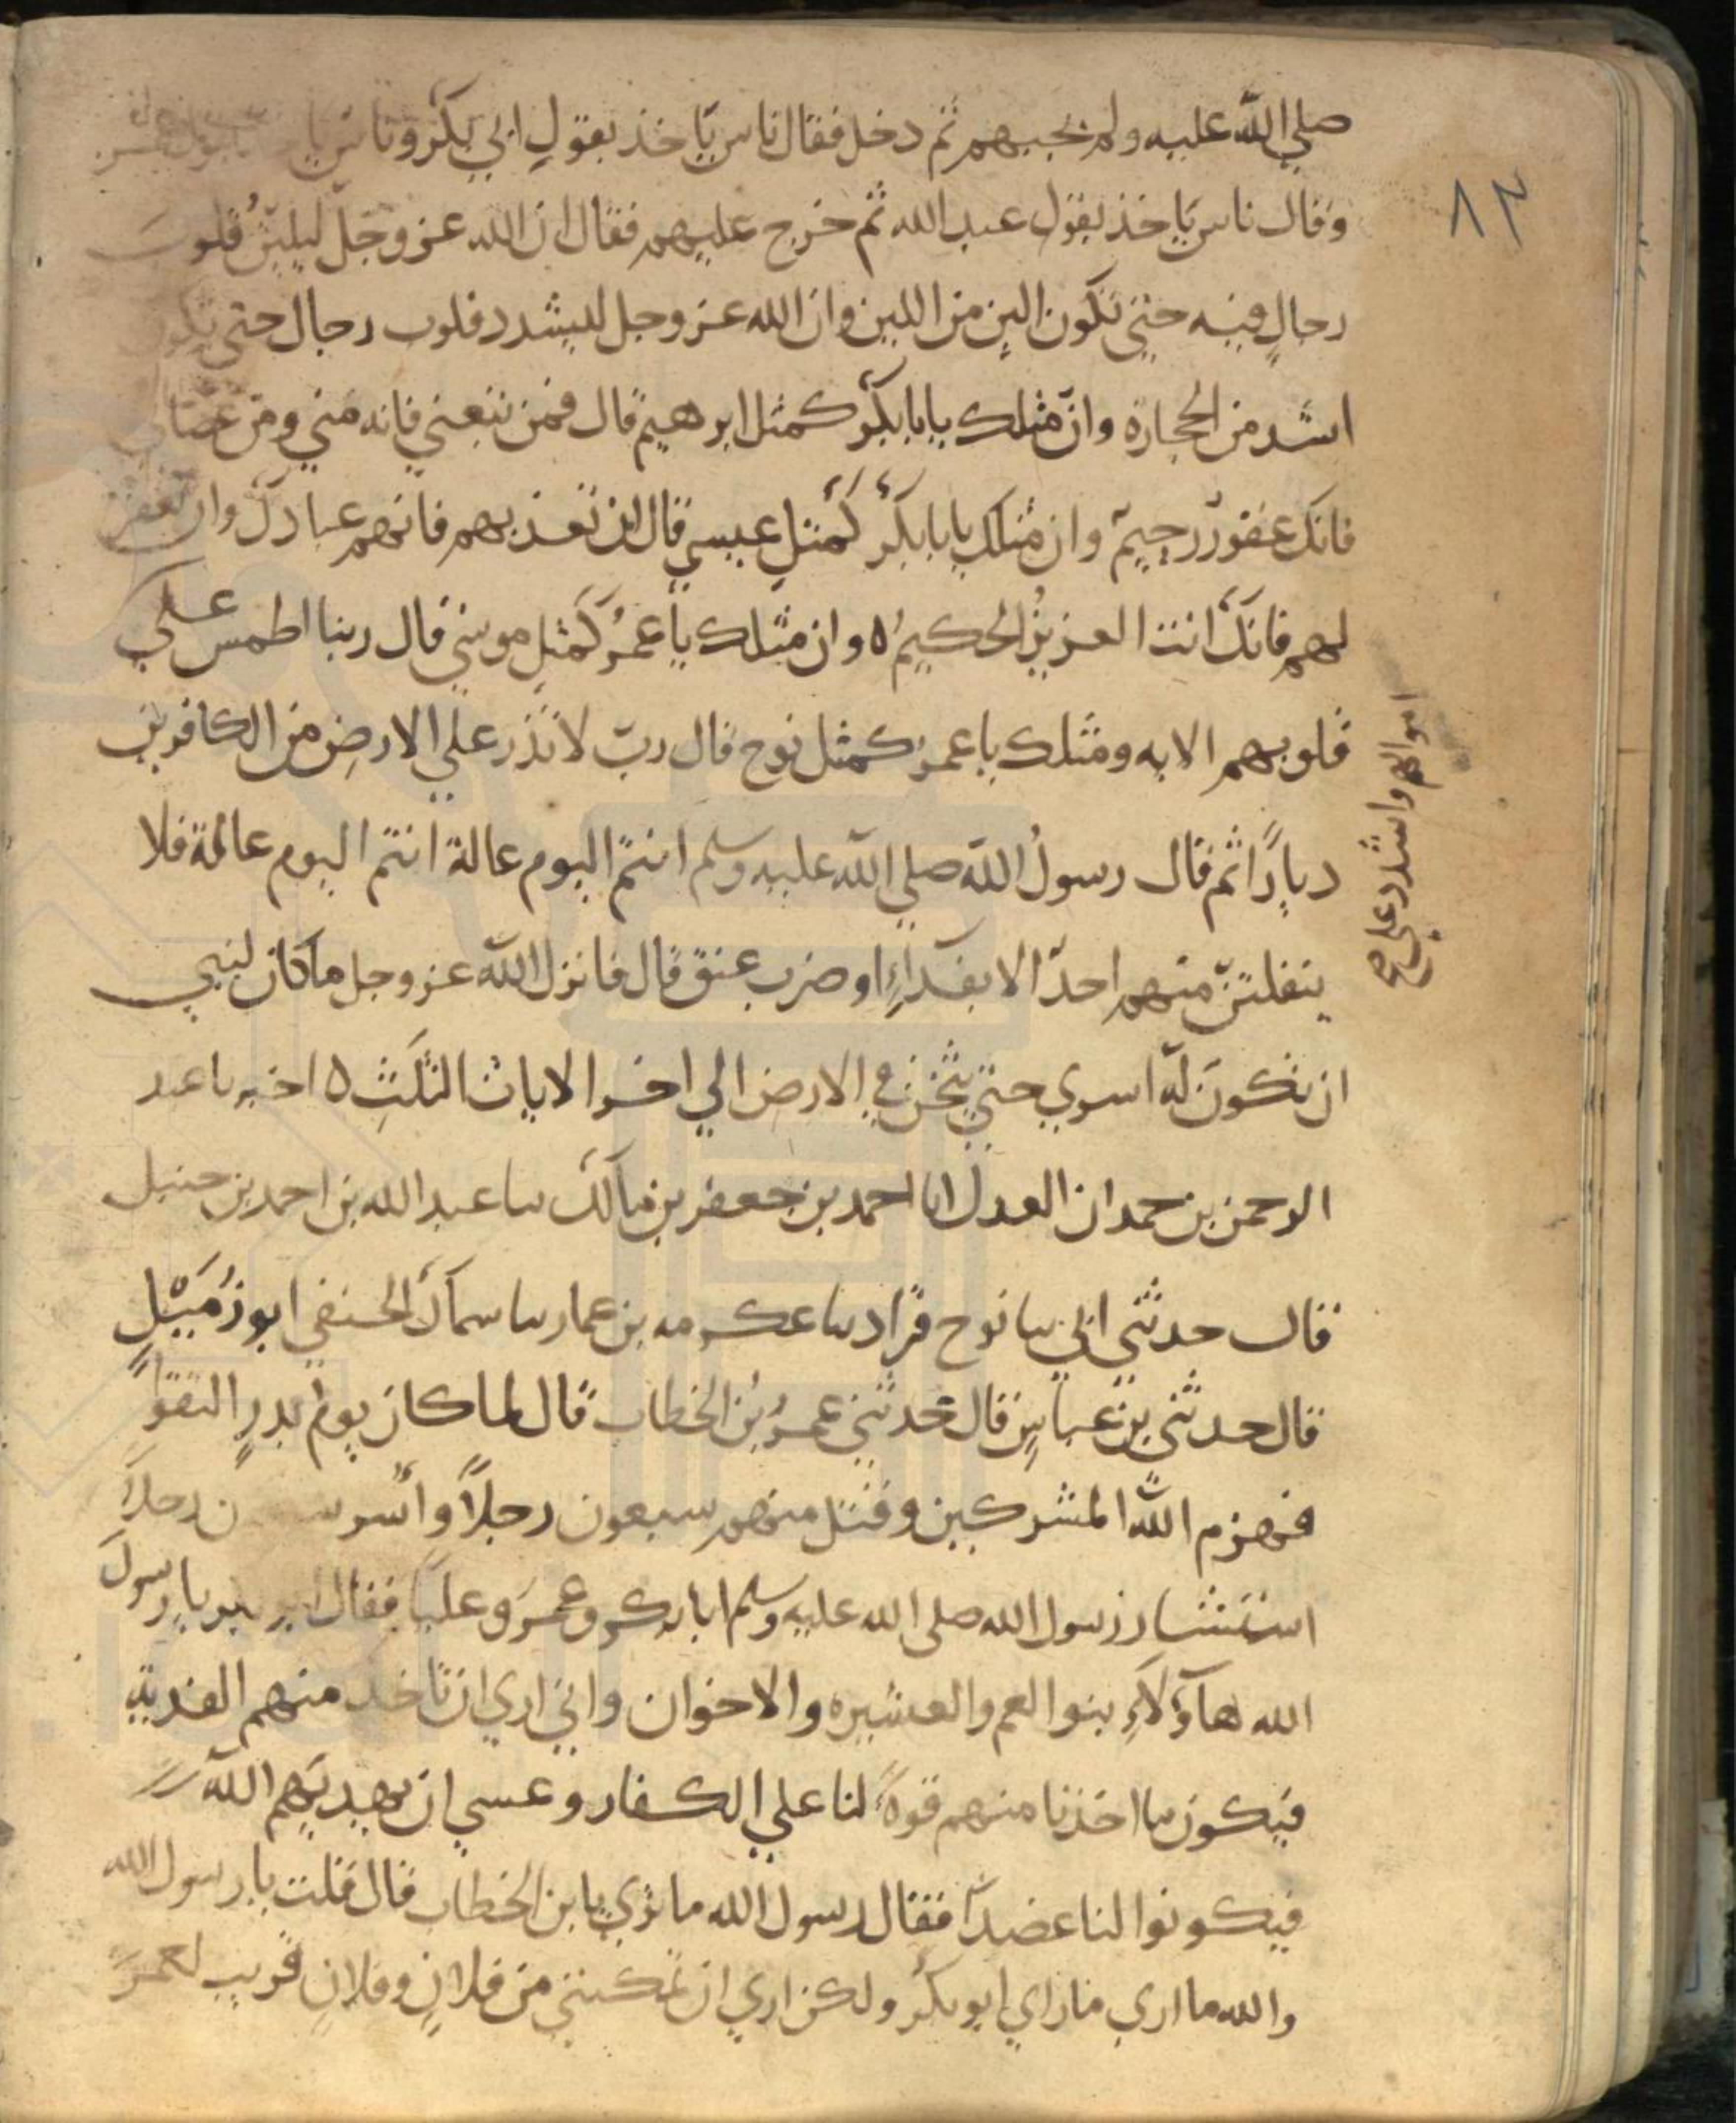 ٨٣
صلي الله عليه ولم يجبهم ثم دخل فقال ناس ياخذ بقول ابي بكر وناس يا بقول عمر
وقال ناس ياخذ بقول عبد الله ثم خرج عليهم فقال ان الله عز وجل ليلين قلوب
رجال فيه حتي تكون الين من اللبن وان الله عز وجل ليشدد قلوب رجال حتي تكون
اشد من الحجارة وان مثلك يابا بكر كمثل ابرهيم قال فمن تبعني فانه مني ومن عصاني
فانك غفور رحيم وان مثلك يابا بكر كمثل عيسي قال ان تعذبهم فانهم عبادك وان تغفر
لهم فانك انت العزيز الحكيم ه وان مثلك يا عمر كمثل موسي قال ربنا اطمس علي
اموالهم واشدد علي صح
قلوبهم الايه ومثلك يا عمر كمثل نوح قال رب لا تذر علي الارض من الكافرين
ديارا ثم قال رسول الله صلي الله عليه وسلم انتم اليوم عالة انتم اليوم عالة فلا
ينفلتن منهم احد الا بفداء او ضرب عنق قال فانزل الله عز وجل ما كان لنبي
ان تكون له اسري حتي يثخن في الارض الي اخر الايات الثلث ه اخبرنا عبد
الرحمن بن حمدان العدل انا احمد بن جعفر بن مالك نا عبد الله بن احمد بن حنبل
قال حدثني ابي نا نوح قراد نا عكرمه بن عمار نا سماك الحنفي ابو زميل
قال حدثني بن عباس قال حدثني عمر بن الخطاب قال لما كان يوم بدر التقوا
فهزم الله المشركين وقتل منهم سبعون رجلا وأسر ن رجلا
استشار رسول الله صلى الله عليه وسلم ابا بكر وعمر وعليا فقال ابو بكر يا رسول
الله هآؤلآء بنوا العم والعشيره والاخوان واني اري ان تاخذ منهم الفدية
فيكون ما اخذنا منهم قوة لنا علي الكفار وعسي ان يهديهم الله
فيكونوا لنا عضدا فقال رسول الله ما تري يا بن الخطاب قال قلت يا رسول الله
والله ما اري ما راي ابو بكر ولكن اري ان تمكنني من فلان وفلان قريب لعمر